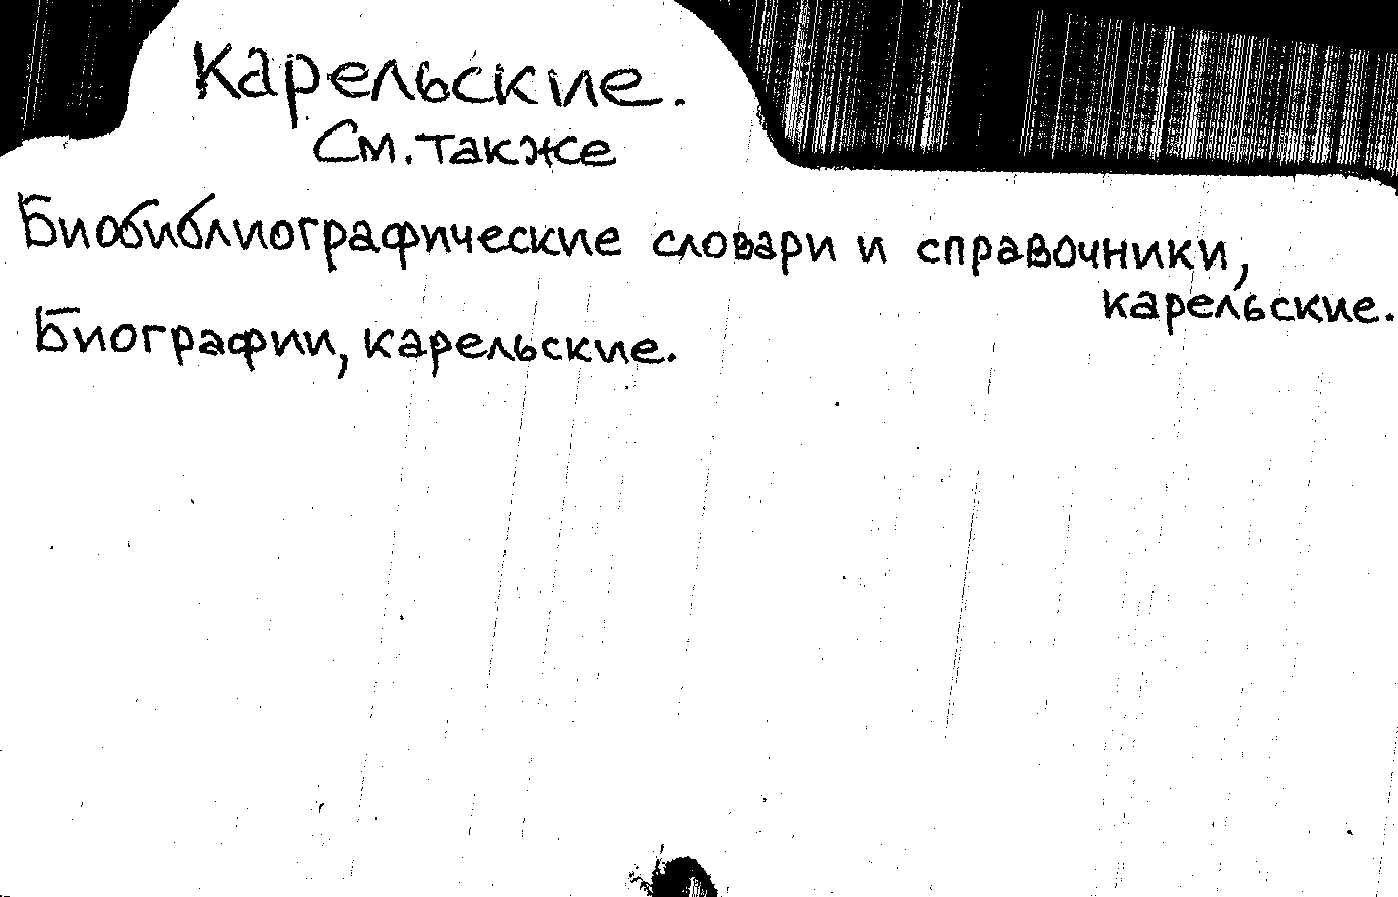 Карельские.
См. также
Биобиблиографические словари и справочники,
карельские.
Биографии, карельские.